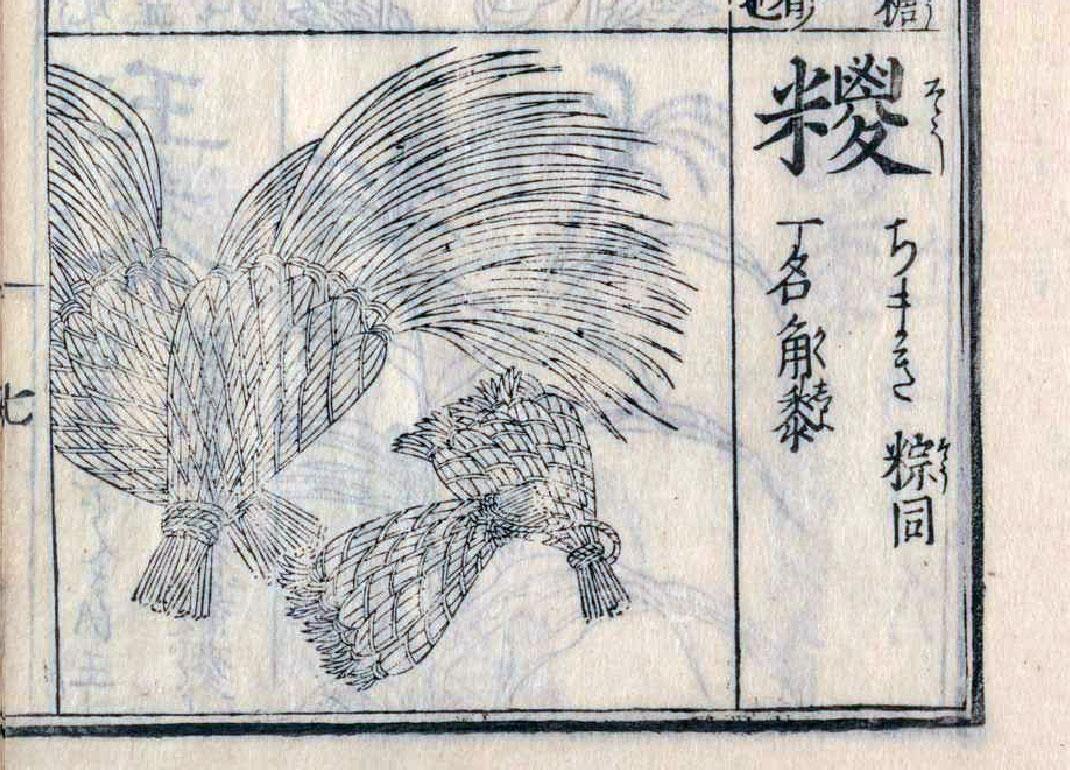 糉
そう
ちまき 粽同
そう
一名角黍
七